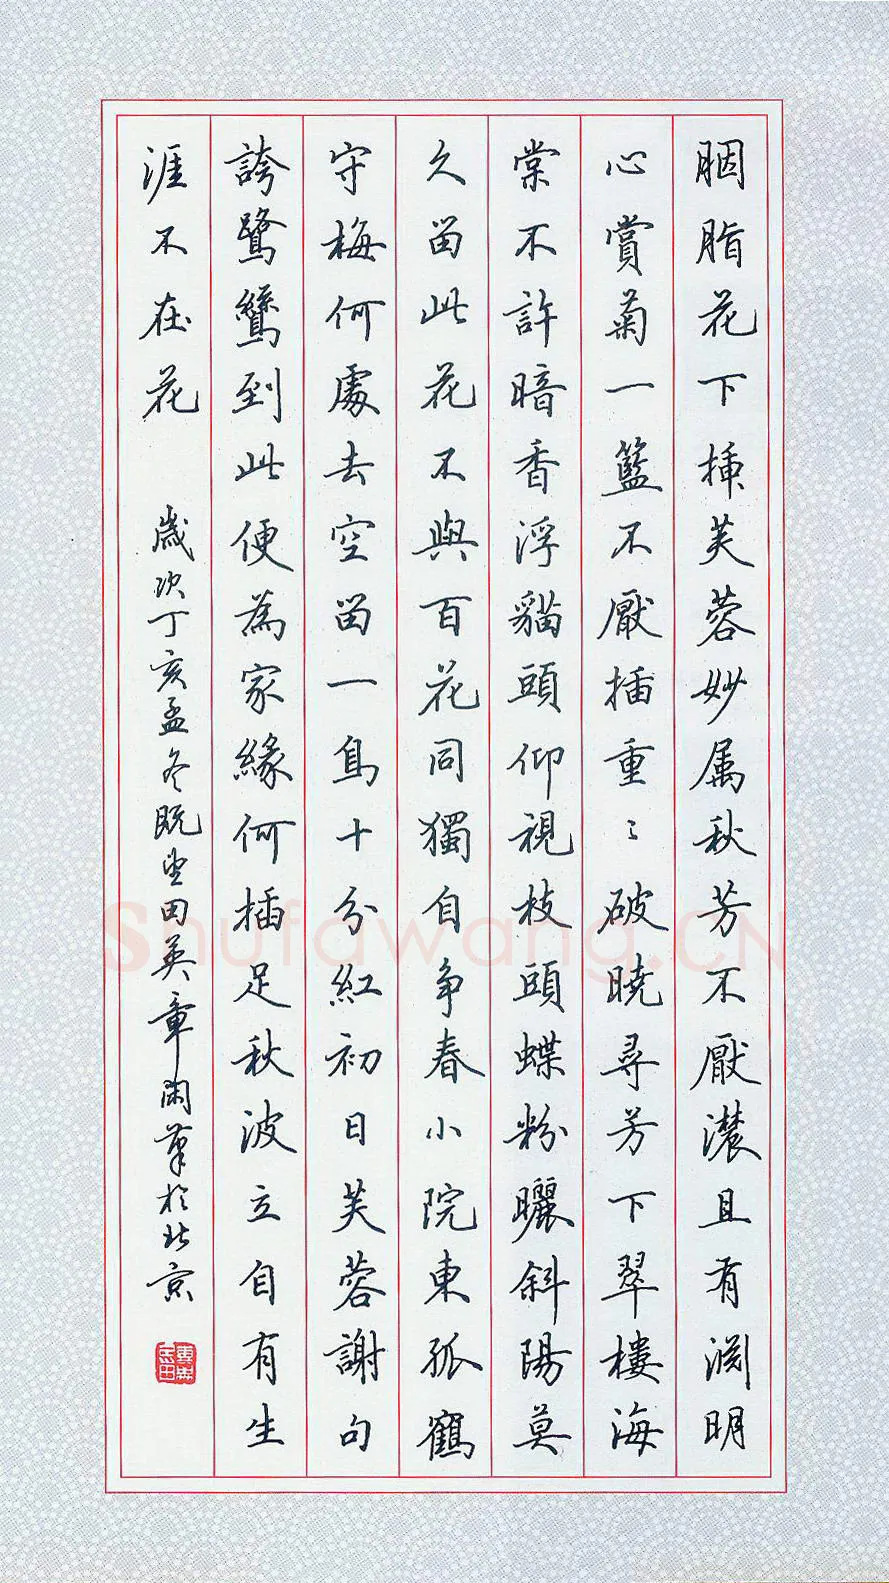 胭脂花下插芙蓉妙属秋芳不厭濃且有淵明
心賞菊一籃不厭插重〻破曉尋芳下翠樓海
棠不許暗香浮貓頭仰視枝頭蝶粉曬斜陽莫
久留此花不與百花同獨自争春小院東孤鶴
守梅何處去空留一鳥十分紅初日芙蓉謝句
誇鷺鷥到此便為家緣何插足秋波立自有生
涯不在花
歲次丁亥孟冬既望田英章閑筆於北京
Shufawang.CN